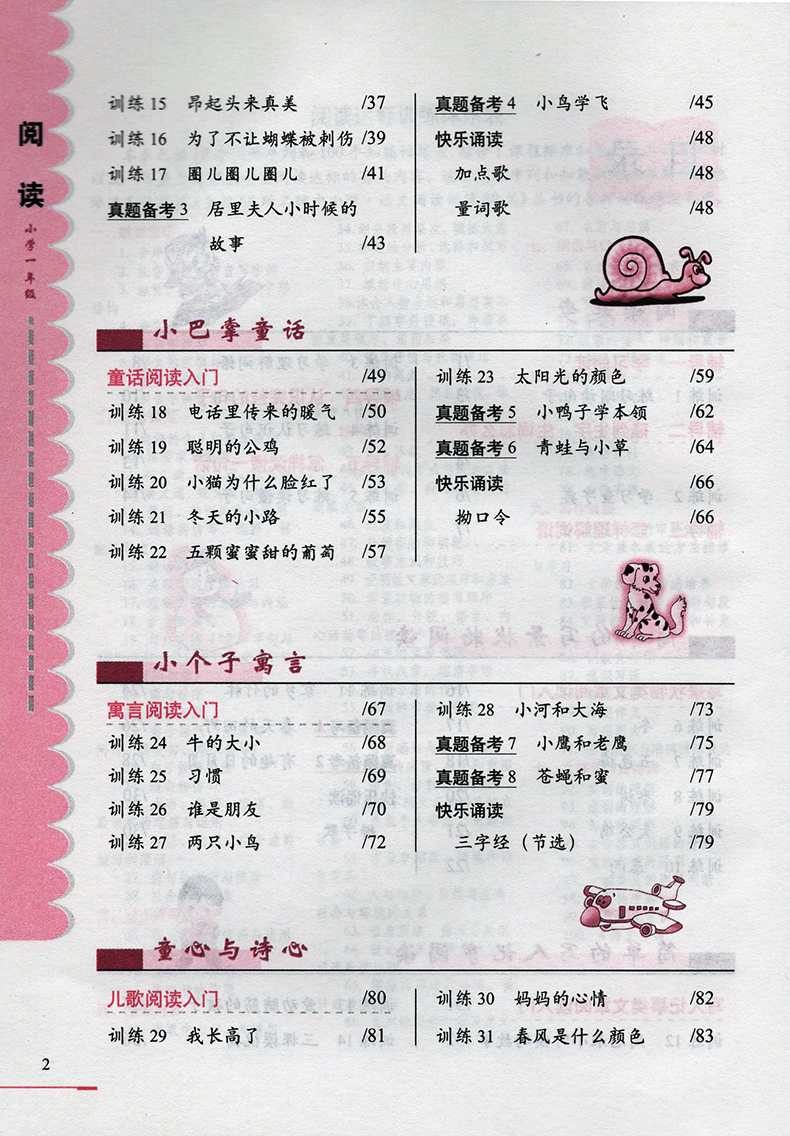 阅读
小学一年级
训练 15 昂起头来真美 /37
训练 16 为了不让蝴蝶被刺伤 /39
训练 17 圈儿圈儿圈儿 /41
真题备考 3 居里夫人小时候的
故事 /43
真题备考 4 小鸟学飞 /45
快乐诵读 /48
加点歌 /48
量词歌 /48
小巴掌童话
童话阅读入门 /49
训练 18 电话里传来的暖气 /50
训练 19 聪明的公鸡 /52
训练 20 小猫为什么脸红了 /53
训练 21 冬天的小路 /55
训练 22 五颗蜜蜜甜的葡萄 /57
训练 23 太阳光的颜色 /59
真题备考 5 小鸭子学本领 /62
真题备考 6 青蛙与小草 /64
快乐诵读 /66
拗口令 /66
小个子寓言
寓言阅读入门 /67
训练 24 牛的大小 /68
训练 25 习惯 /69
训练 26 谁是朋友 /70
训练 27 两只小鸟 /72
训练 28 小河和大海 /73
真题备考 7 小鹰和老鹰 /75
真题备考 8 苍蝇和蜜 /77
快乐诵读 /79
三字经（节选） /79
童心与诗心
儿歌阅读入门 /80
训练 29 我长高了 /81
训练 30 妈妈的心情 /82
训练 31 春风是什么颜色 /83
2